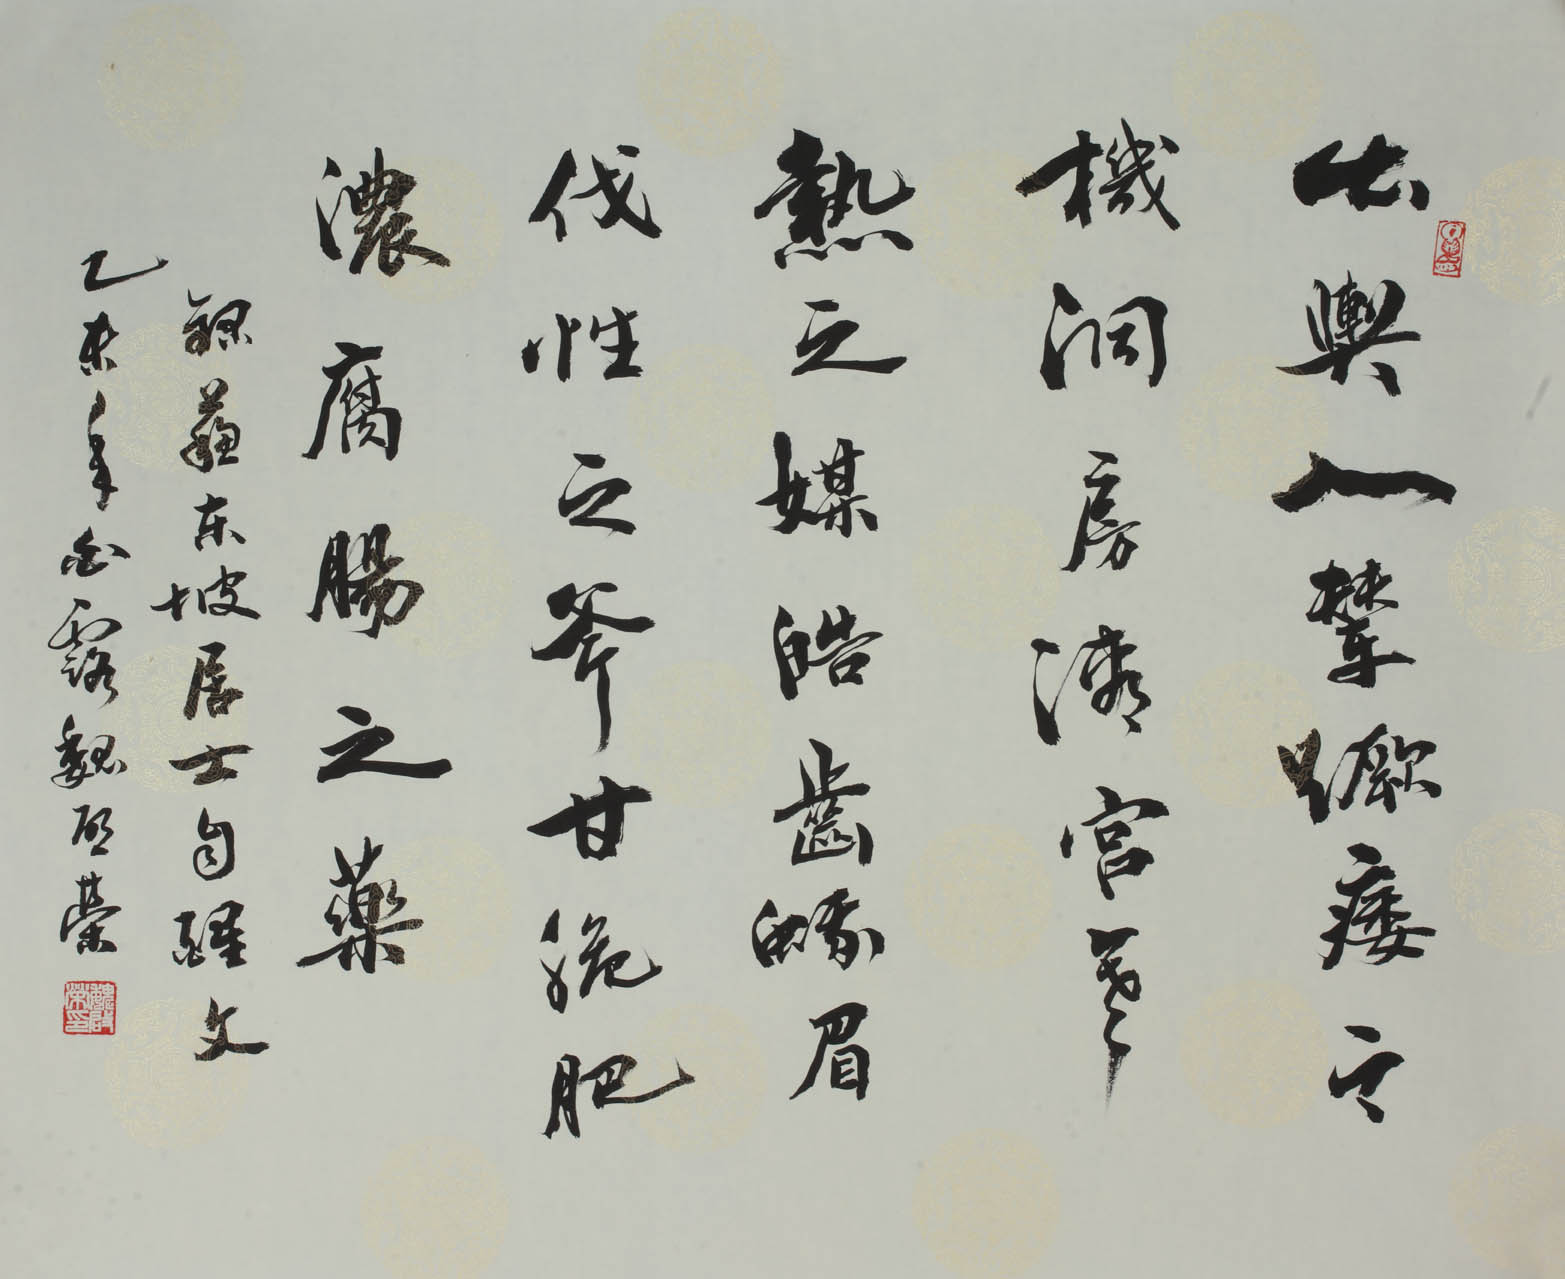 出輿入輦蹶痿之
機洞房清宮寒
熱之媒皓齒蛾眉
伐性之斧甘脆肥
濃腐腸之藥
録蘇东坡居士文
乙未年白露魏啟榮
魏啟榮印